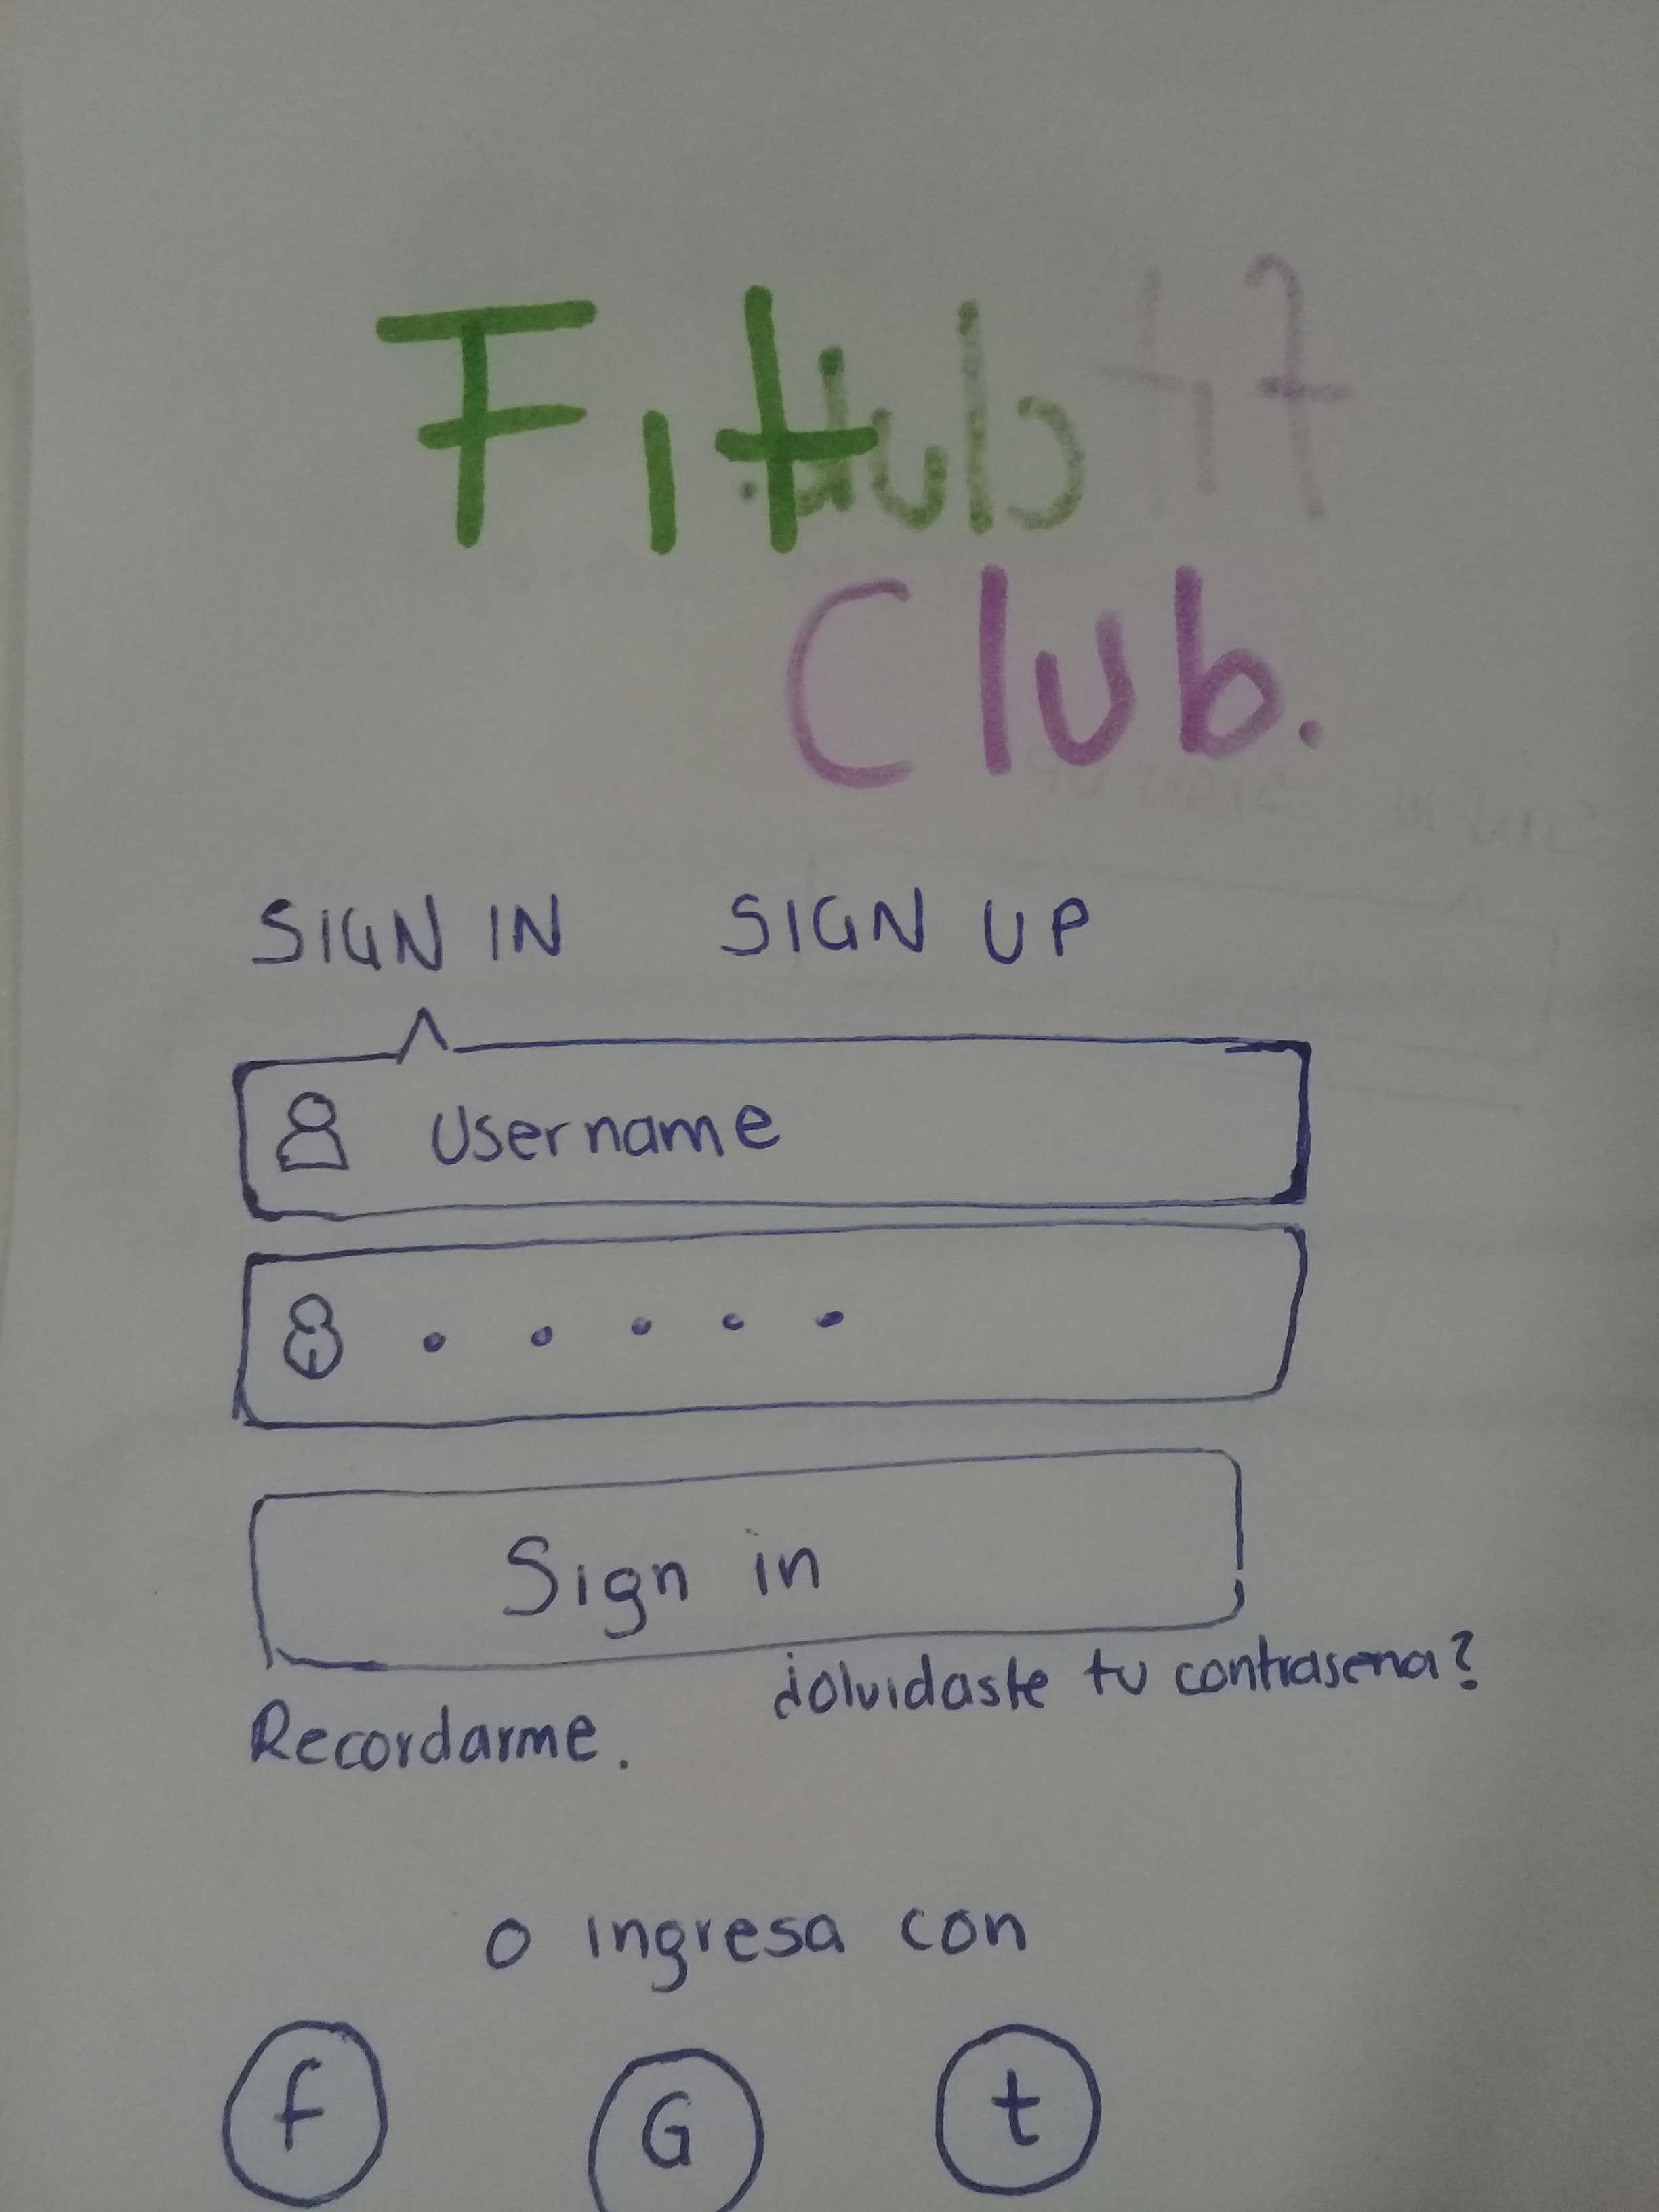 Fit
Club.
SIGN IN SIGN UP
Username
• • • • •
Sign in
¿olvidaste tu contrasena?
Recordarme.
o ingresa con
f G t